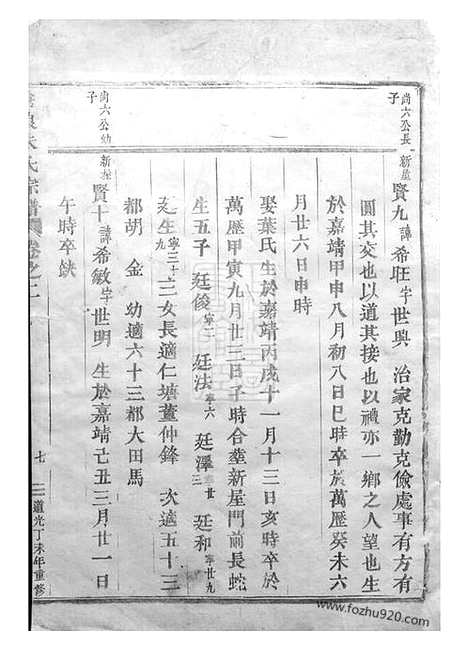 尚六公長子
新屋
賢九諱希旺字世興 治家克勤克儉處事有方有
圓其交也以道其接也以禮亦一鄉之人望也生
於嘉靖甲申八月初八日巳時卒於萬歷癸未六
月廿六日申時
娶葉氏生於嘉靖丙戌十一月十三日亥時卒於
萬歷甲寅九月廿三日子時合塟新屋門前長蛇
生五子 廷俊寧二 廷法寧六 廷澤寧廿三 廷和寧廿九
廷生寧三十九 二女長適仁塘董仲鋒 次適五十三
都胡 金 幼適六十三都大田馬
尚六公幼子
新屋
賢十諱希敏字世明 生於嘉靖己丑三月廿一日
午時卒缺
朱氏宗譜
卷之二
七
道光丁未年重修
www.fozhu920.com